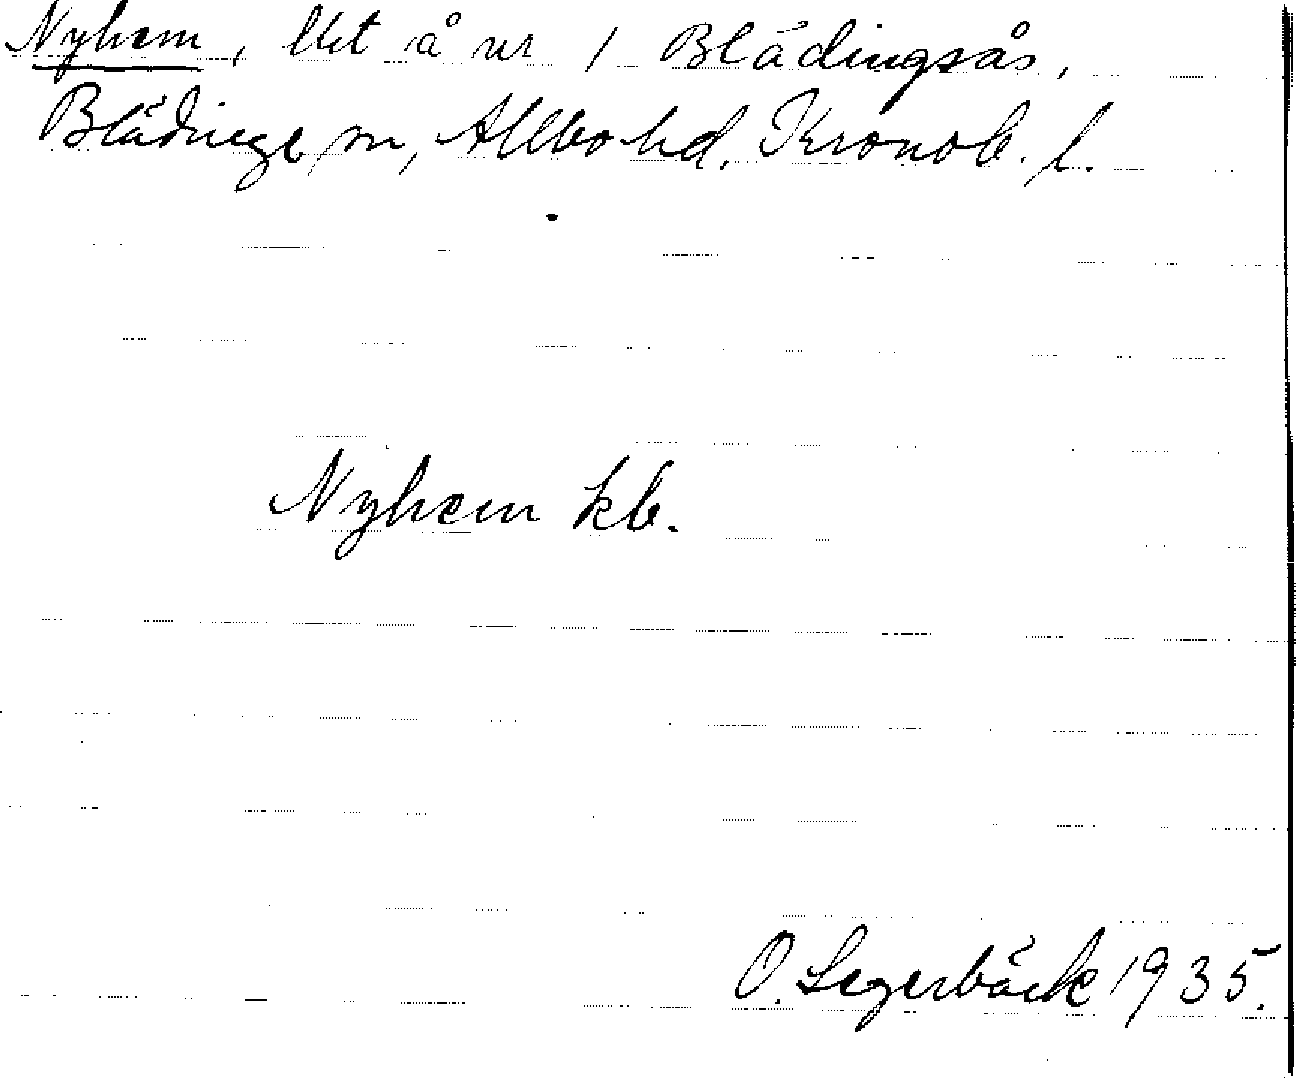 Nyhem, lht å nr 1 Blädingsås,
Blädinge sn, Allbo hd, Kronob. l.
Nyhem kb.
O. Segerbäck 1935.